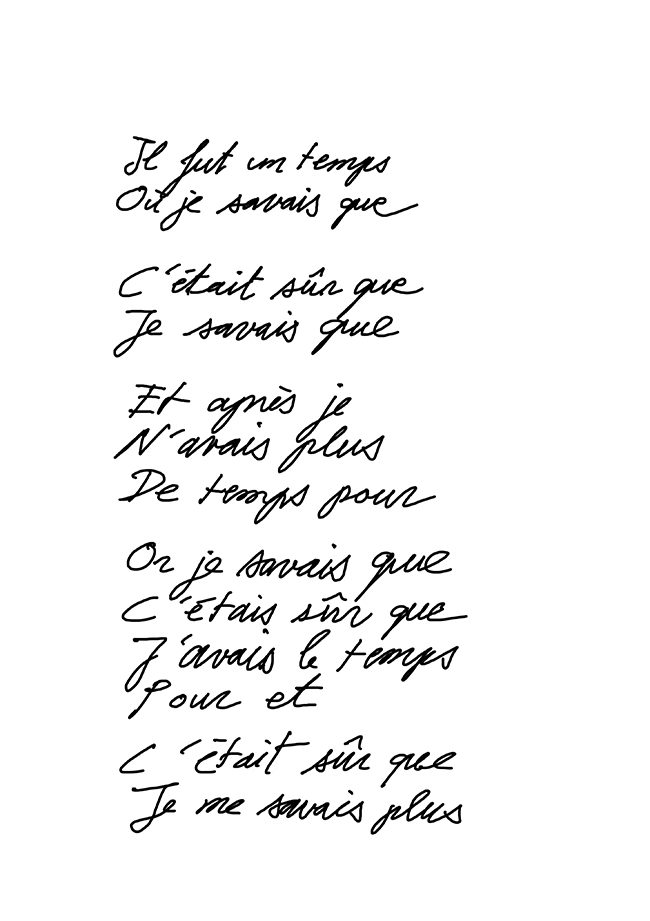 Il fut un temps
Où je savais que
C'était sûr que
Je savais que
Et après je
N'avais plus
De temps pour
Or je savais que
C'étais sûr que
J'avais le temps
Pour et
C'était sûr que
Je me savais plus